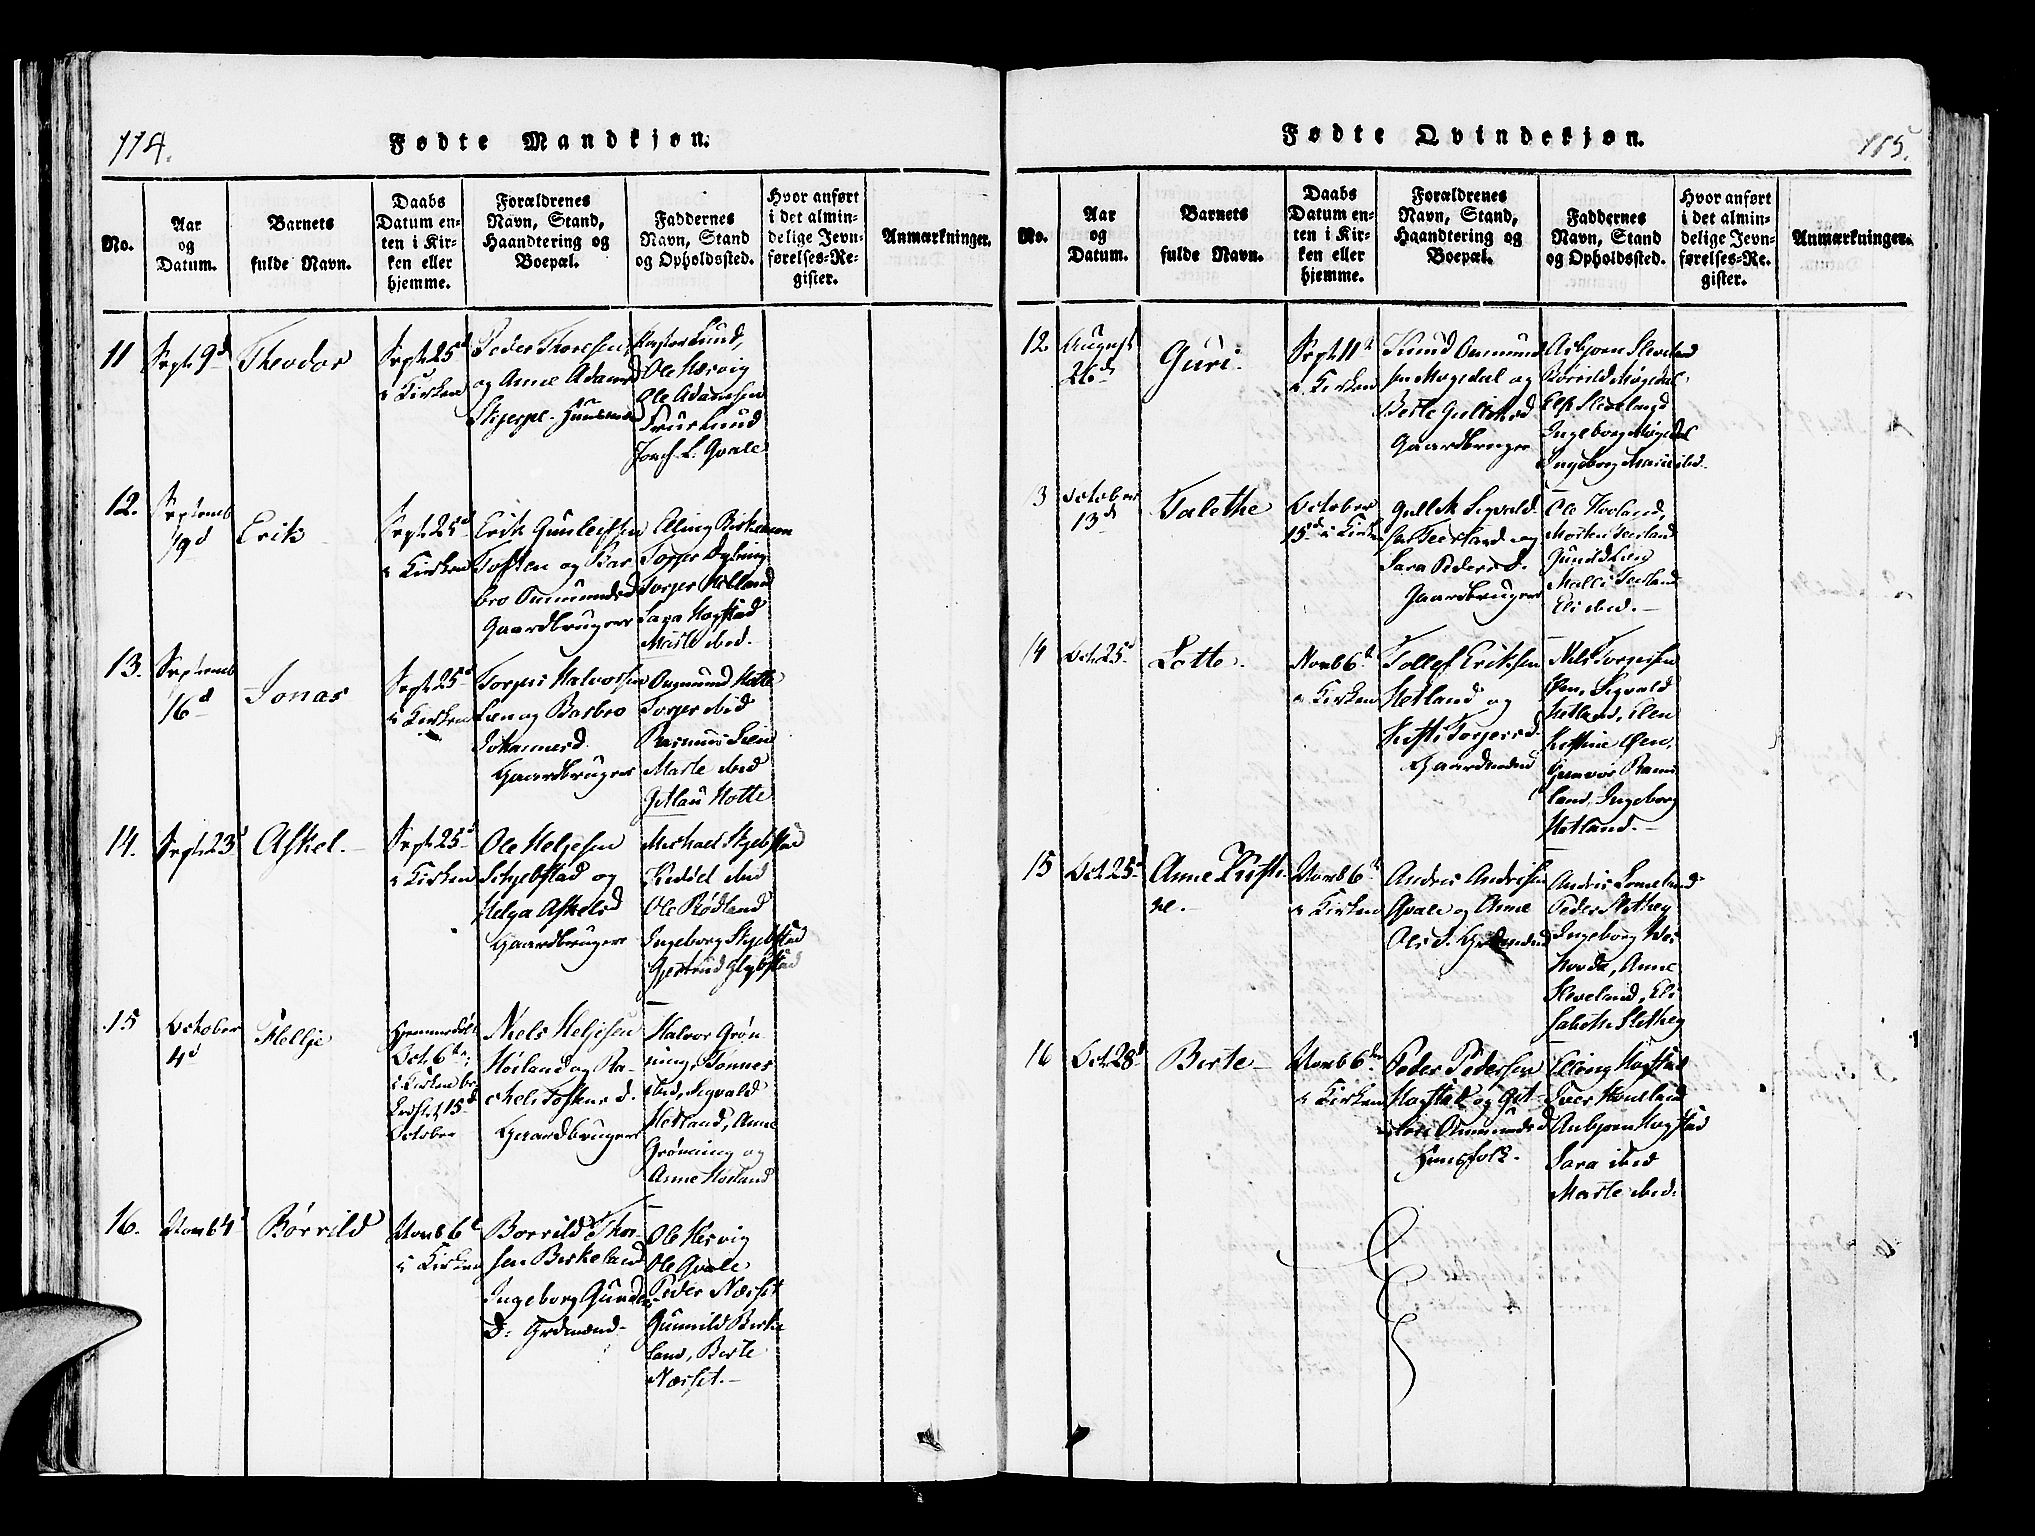 114.
Fødte Mandkjøn.
No.
Aar
og
Datum.
Barnets
fulde Navn.
Daabs
Datum en-
ten i Kir-
ken eller
hjemme.
Forældrenes
Navn, Stand,
Haandtering og
Boepæl.
Faddernes
Navn, Stand
og Opholdssted.
Hvor anført
i det almin-
delige Jevn-
førelses-Re-
gister.
Anmærkninger.
11
Sept. 9d
Theodor
Sept. 25d
i Kirken
Peder Thoresen
og Anne Adamsd
Lund,
Ole Hervig
Ole Adamsen
Frue Lund
Josef L. Qvale
12.
Septemb
19d
Erik
Sept. 25d
i Kirken
Erik Gunleifsen
Toften og Bar
bro Ommundsd
Gaardbruger
Elling
Torger
Torger Helland
Sara Hogstad
Marte ibid.
13.
Septemb
16d
Jonas
Sept. 25d
i Kirken
Torger Halvorsen
Lien og Barbro
Johannesd.
Gaardbruger
Ougmund Hotte
Torger ibid
Rasmus Lien
Marte ibid
Hotte
14.
Sept. 23d
Askel.
Sept. 25d
i Kirken
Ole Heljesen
Skjebstad og
Helga Askelsd
Gaardbruger
Michael Skjebstad
ibid
Ole Rødland
Ingeborg Skjebstad
Gjertrud Skjebstad
15
October
4d
Helljе
Oct. 6te,
i Kirken be
15d
October
Niels Heljesen
Høiland og Ra-
chel Tostensd.
Gaardbruger
Halvor Grøn
ning, Tønnes
ibid, Sigvald
Hetland, Anne
Grønning og
Anne Høiland
16.
Novb 4d
Børrild
Novb 6te
i Kirken
Borrild Thor-
sen Birkeland
Ingeborg Gunders
D.
Ole Hervig
Ole Qvale
Peder Nærset
Gunnild Birke
land, Berte
Nærset.
115.
Fødte Qvindekjøn.
No.
Aar
og
Datum.
Barnets
fulde Navn.
Daabs
Datum en-
ten i Kir-
ken eller
hjemme.
Forældrenes
Navn, Stand,
Haandtering og
Boepæl.
Faddernes
Navn, Stand
og Opholdssted.
Hvor anført
i det almin-
delige Jevn-
førelses-Re-
gister.
Anmærkninger.
12.
August
26d
Guri.
Sept. 11te
i Kirken
Knud Ommund
sen Møgedal og
Berte
Gaardbruger
Asbjørn Sleveland
Borrild Møgedal
Sleveland
Ingeborg Møgedal
Ingeborg Marie ibid.
13
October
13d
Talethe
October
15d i Kirken
Gullek Sigvald-
sen Teesland og
Sara Pedersd.
Gaardbruger
Ole Høiland,
Morten Teesland
Gunild Lien
Malli Teesland
Eli ibid.
14
Oct. 25d
Lotte.
Novb 6te
i Kirken
Tollef Eriksen
Hetland og
Torgersd.
Gaardmænd
Niels Torgersen
Øen, Sigvald
Hetland, Elen
Kirstine Øen,
Gunvor Rams
land, Ingeborg
Hetland.
15
Oct. 25d
Anne Kirsti-
ne.
Novb 6te
i Kirken
Andreas Andersen
Qvale og Anne
Olsd.
Andreas Lomeland
Peder Slethey
Ingeborg Ves
hovde, Anne
Sleveland, Eli
sabeth Slethey
16
Oct. 28d
Berte
Novb 6te
i Kirken
Peder Pedersen
Hogstad og
Ommundsd
Huusfolk.
Elling Hogstad
Iver Honeland
Anbjørn Hogstad
Sara ibid
Marte ibid.